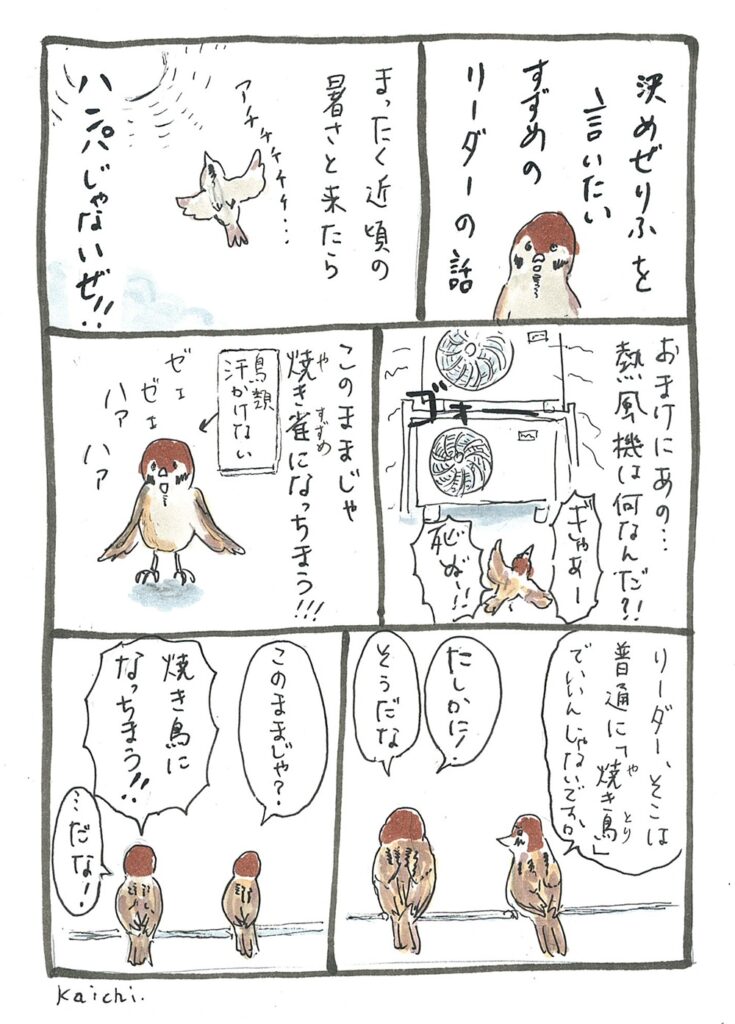 決めぜりふを
言いたい
すずめの
リーダーの話
まったく近頃の
暑さと来たら
アチチチチチ…
ハンパじゃないぜ!!
おまけにあの…
熱風機は何なんだ?!
ゴォー
ぎゃあー
死ぬー!!
このままじゃ
焼き雀になっちまう!!!
や すずめ
鳥類
汗かけない
ゼェ
ゼェ
ハァ
ハァ
リーダー、そこは
普通に「焼き鳥」
や とり
でいいんじゃないですか?
たしかに!
そうだな
このままじゃ?
焼き鳥に
なっちまう!!
…だな!
Kaichi.